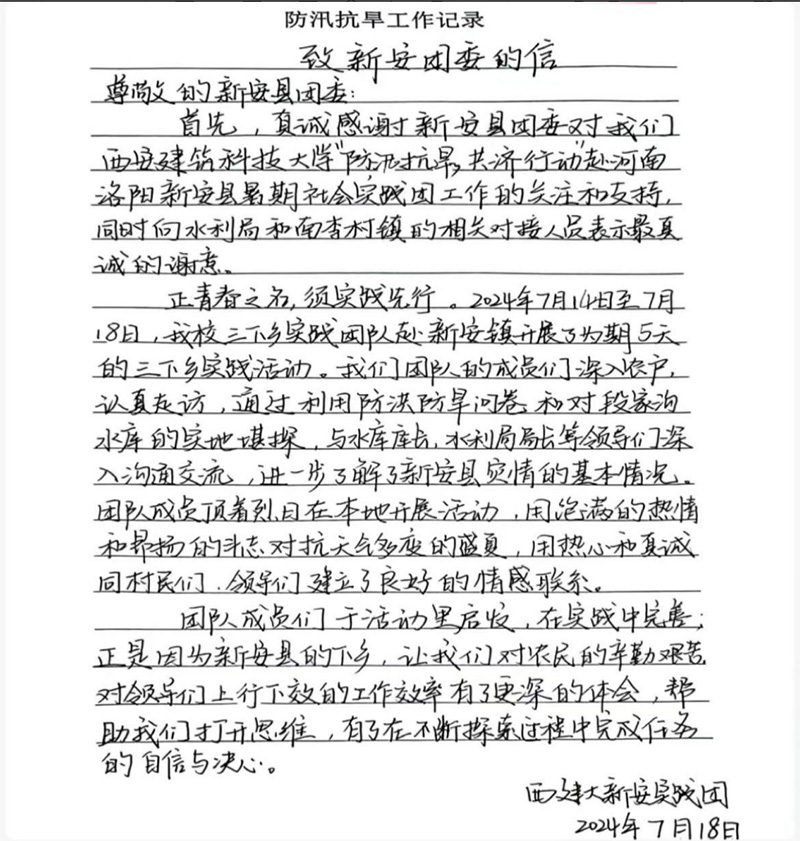 防汛抗旱工作记录
致新安团委的信
尊敬的新安县团委：
首先，真诚感谢新安县团委对我们
西安建筑科技大学"防汛抗旱，共济行动"赴河南
洛阳新安县暑期社会实践团工作的关注和支持，
同时向水利局和南李村镇的相关对接人员表示最真
诚的谢意。
正青春之名，须实践先行。2024年7月14日至7月
18日，我校三下乡实践团队赴新安镇开展了为期5天
的三下乡实践活动。我们团队的成员们深入农户，
认真走访，通过利用防洪防旱问卷和对段家沟
水库的实地堪探，与水库库长，水利局局长等领导们深
入沟通交流，进一步了解了新安县灾情的基本情况。
团队成员顶着烈日在本地开展活动，用饱满的热情
和昂扬的斗志对抗天气多变的盛夏，用热心和真诚
同村民们、领导们建立了良好的情感联系。
团队成员们于活动里启发，在实战中完善；
正是因为新安县的下乡，让我们对农民的辛勤艰苦
对领导们上行下效的工作效率有了更深的体会，帮
助我们打开思维，有了在不断探索过程中完成任务
的自信与决心。
西建大新安实践团
2024年7月18日